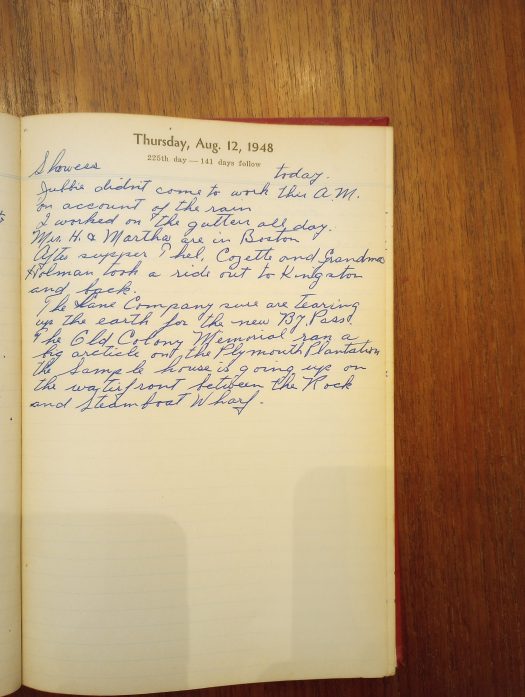 Thursday, Aug. 12, 1948
225th day — 141 days follow
Showers today.
didnt come to work this A.M.
on account of the rain
I worked on the gutter all day.
Mrs. H. & Martha are in Boston
After supper Thel, Cozette and Grandma
Holman took a ride out to Kingston
and back.
The Lane Company sure are tearing
up the earth for the new By Pass.
The Old Colony Memorial ran a
big article on the Plymouth Plantation
the sample house is going up on
the waterfront between the Rock
and Steamboat Wharf.